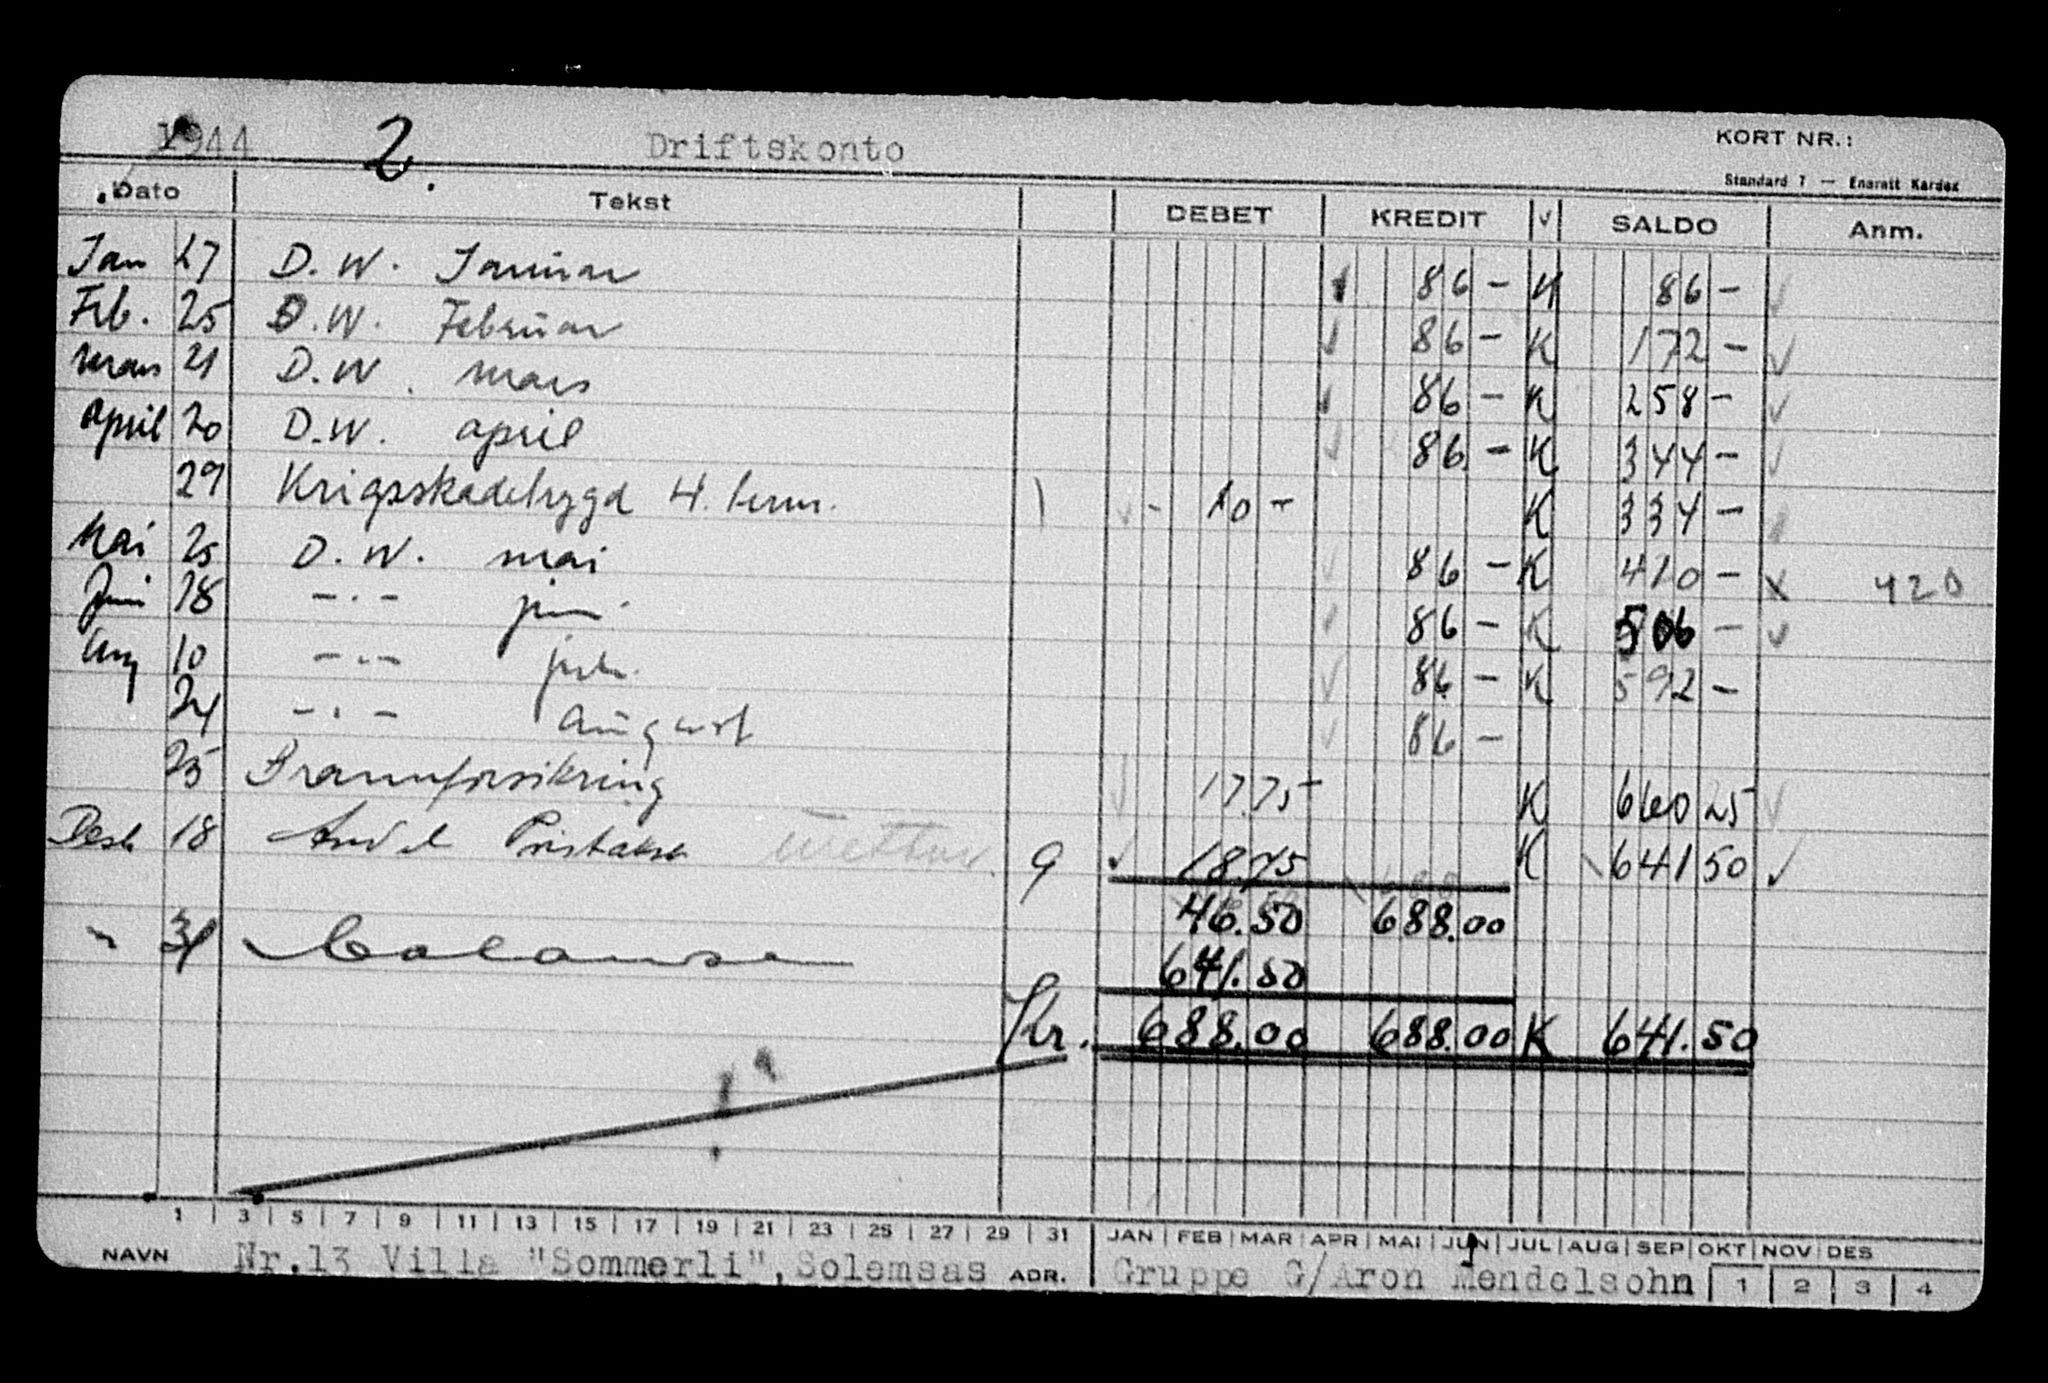 1944 2. Driftskonto KORT NR.:
Standard 7 — Enerett Kardex
Dato Tekst DEBET KREDIT √ SALDO Anm.
Jan 27 D.W. Januar 86 - K 86 -
Feb. 25 D.W. Februar 86 - K 172 -
Mars 21 D.W. mars 86 - K 258 -
April 20 D.W. april 86 - K 344 -
29 Krigsskadetrygd 4. term. 10 - K 334 -
Mai 25 D.W. mai 86 - K 410 - 420
Juni 18 -.- juni 86 - K 506 -
Aug 10 -.- juli 86 - K 592 -
24 -.- august 86 -
25 Brannforsikring 17.75 K 660 25
Des 18 Andel 9 18.75 K 641 50
46.50 688.00
" 31 balanse 641.50
Kr. 688.00 688.00 K 641.50
1 3 5 7 9 11 13 15 17 19 21 23 25 27 29 31 JAN FEB MAR APR MAI JUN JUL AUG SEP OKT NOV DES
NAVN Nr.13 Villa "Sommerli", Solemsås ADR. Gruppe G/Aron Mendelsohn 1 2 3 4